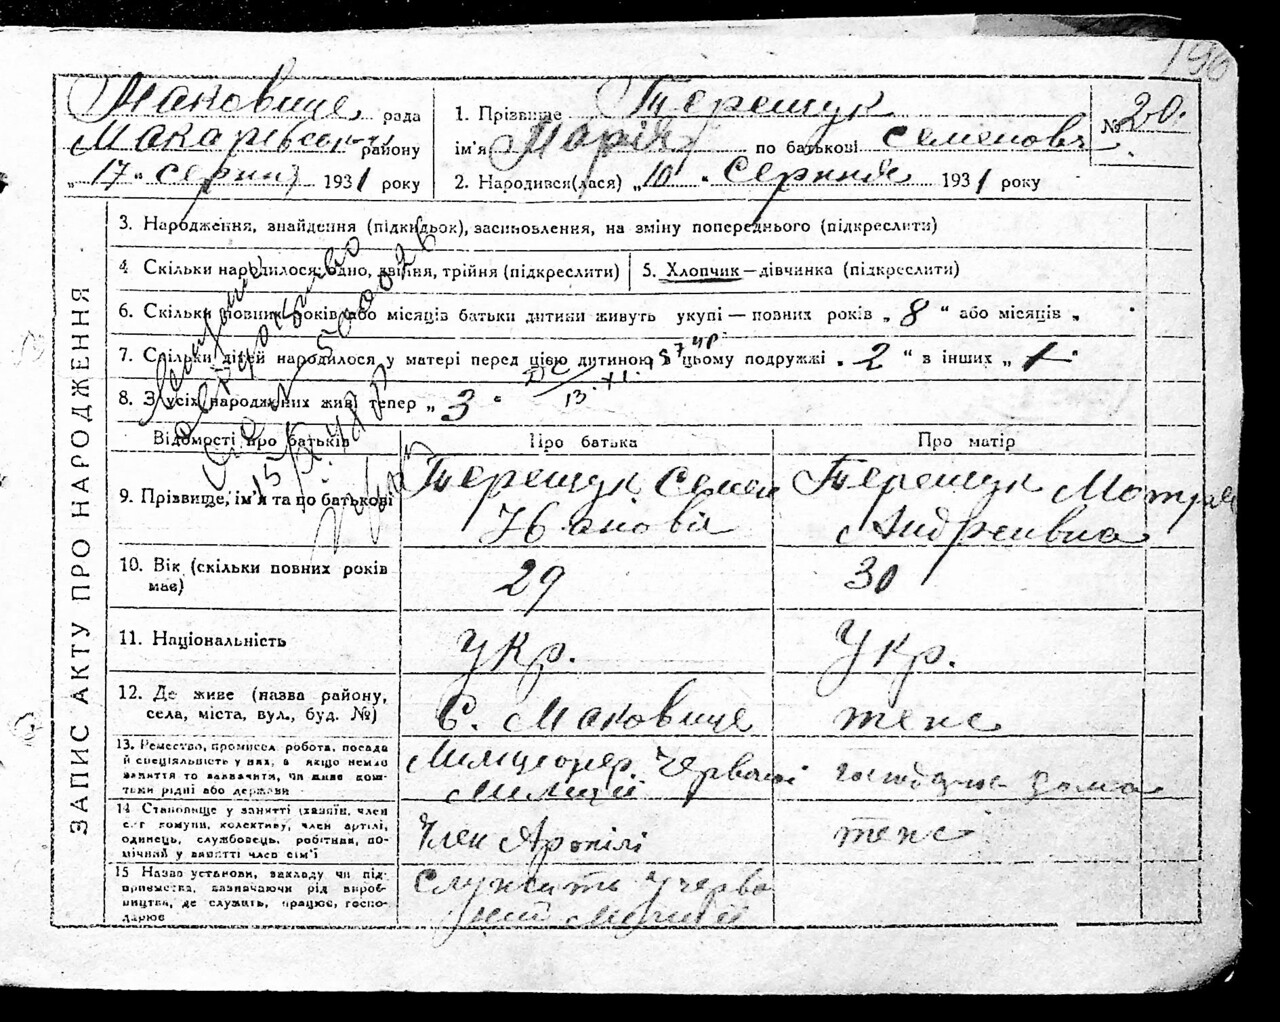 190
Маковище рада
Макарівськ району
„17" серпня 1931 року
1. Прізвище Терещук
ім'я Марія по батькові Семеновя
№ 20.
2. Народився(лася) „10" Серпня 1931 року
ЗАПИС АКТУ ПРО НАРОДЖЕННЯ
3. Народження, знайдення (підкидьок), засиновлення, на зміну попереднього (підкреслити)
4. Скільки народилося: одно, двійня, трійня (підкреслити)
5. Хлопчик—дівчинка (підкреслити)
6. Скільки повних років або місяців батьки дитини живуть укупі—повних років „8" або місяців „
7. Скільки дітей народилося у матері перед цією дитиною в цьому подружжі „2" в інших „1"
8. З усіх народжених живі тепер „3"
13.XI.
500026
15 XI 48 р
Відомості про батьків
Про батька
Про матір
9. Прізвище, ім'я та по батькові
Терещук Семен
Івановія
Терещук Мотря
Андреивна
10. Вік (скільки повних років має)
29
30
11. Національність
Укр.
Укр.
12. Де живе (назва району,
села, міста, вул., буд. №)
С. Маковище
теж
13. Ремество, промисел, робота, посада
й спеціяльність у них, а якщо немає
заняття то зазначити, чи живе кош-
тами рідні або держави
Миліціонер Червоної
Миліції
господиня дома
14 Становище у занятті (хазяїн, член
с.-г комуни, колективу, член артілі,
одинець, службовець, робітник, по-
мічний у занятті член сім'ї
Член Артілі
теж
15 Назва установи, закладу чи під-
приємства, зазначаючи рід вироб-
ництва, де служить, працює, госпо-
дарює
Служить у черво
ний Миліції